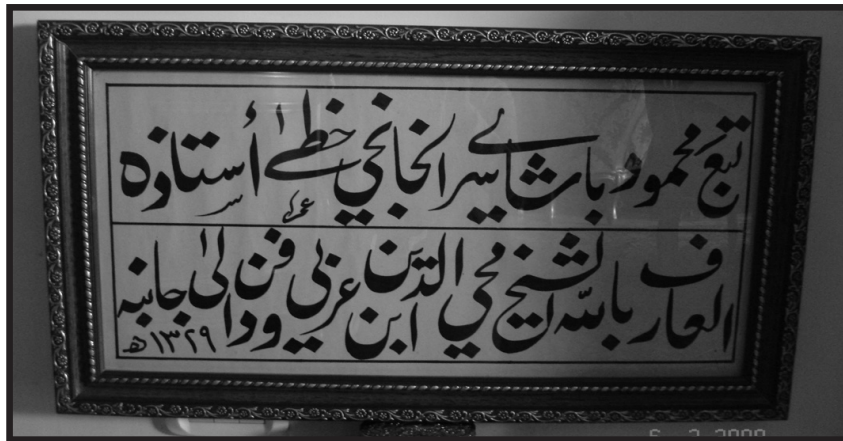 تبع محمود باشا سري الخانجي خطى أستاذه
العارف بالله الشيخ محي الدين ابن عربي ودفن الى جانبه
١٣٢٩ هـ